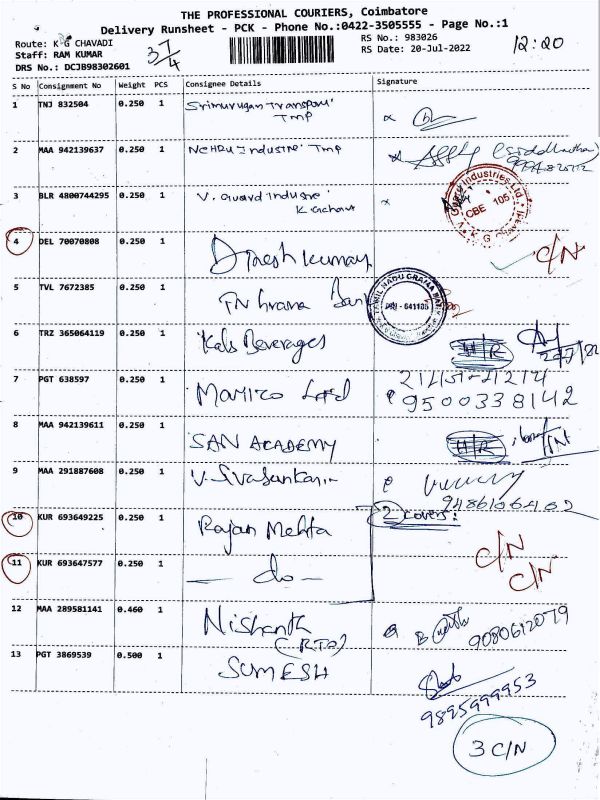 THE PROFESSIONAL COURIERS, Coimbatore
Delivery Runsheet - PCK - Phone No.:0422-3505555 - Page No.:1
Route: K G CHAVADI
Staff: RAM KUMAR
DRS No.: DCJB98302601
37/4
RS No.: 983026
RS Date: 20-Jul-2022
12:20
S No Consignment No Weight PCS Consignee Details Signature
1 TNJ 832504 0.250 1 Srimurugan Transport
TMP
2 MAA 942139637 0.250 1 Nehru Industrie TMP
3 BLR 4800744295 0.250 1 V. Guard Industrie
CBE 105
4 DEL 70070808 0.250 1 Dinesh Kumar C/N
5 TVL 7672385 0.250 1 TN Grama Bank
TAMIL NADU GRAMA BANK
6 TRZ 365064119 0.250 1 Kals Beverages
H/R
7 PGT 638597 0.250 1 Marico Ltd
9500338142
8 MAA 942139611 0.250 1 SAN ACADEMY H/R
9 MAA 291887608 0.250 1 V. Sivasankaran
10 KUR 693649225 0.250 1 Rajan Mehta
2 covers:
C/N
11 KUR 693647577 0.250 1 — do —
C/N
12 MAA 289581141 0.460 1 Nishanth
(RTO)
9080612079
13 PGT 3869539 0.500 1 SUMESH
9895999953
3 C/N